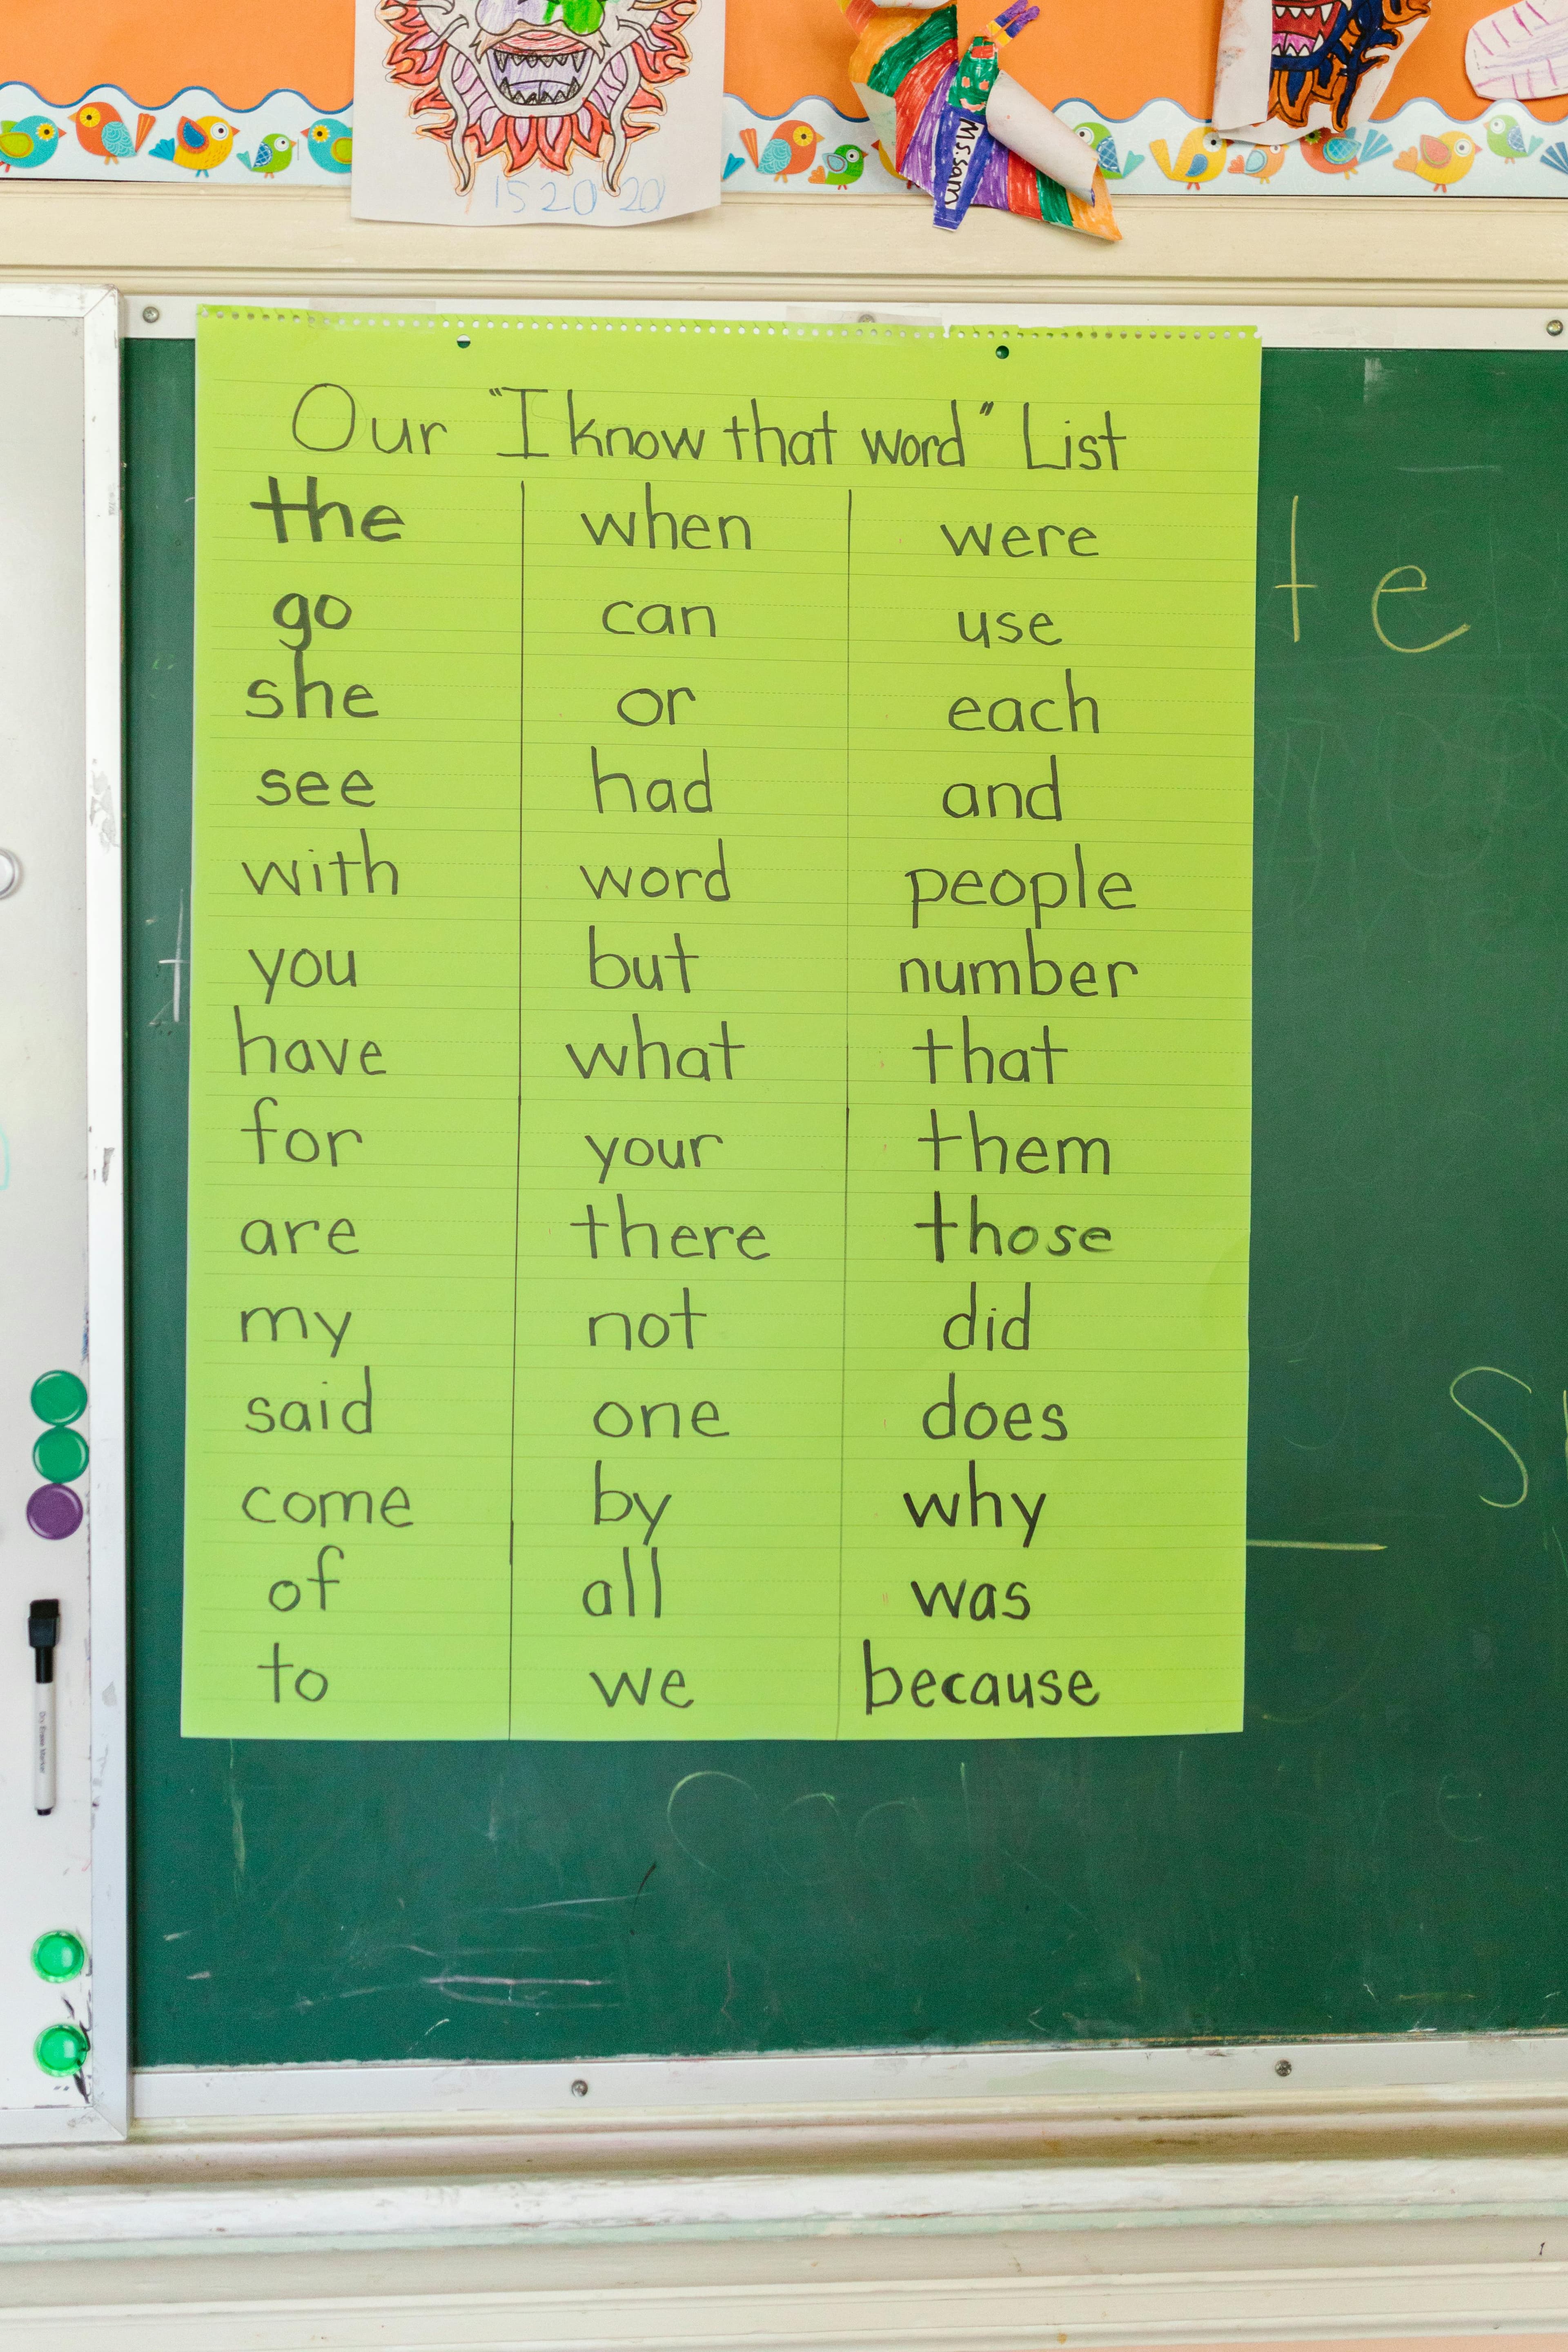 15 20 20
Ms. Sam
Our "I know that word" List
the when were
go can use
she or each
see had and
with word people
you but number
have what that
for your them
are there those
my not did
said one does
come by why
of all was
to we because
te
Dry Erase Marker